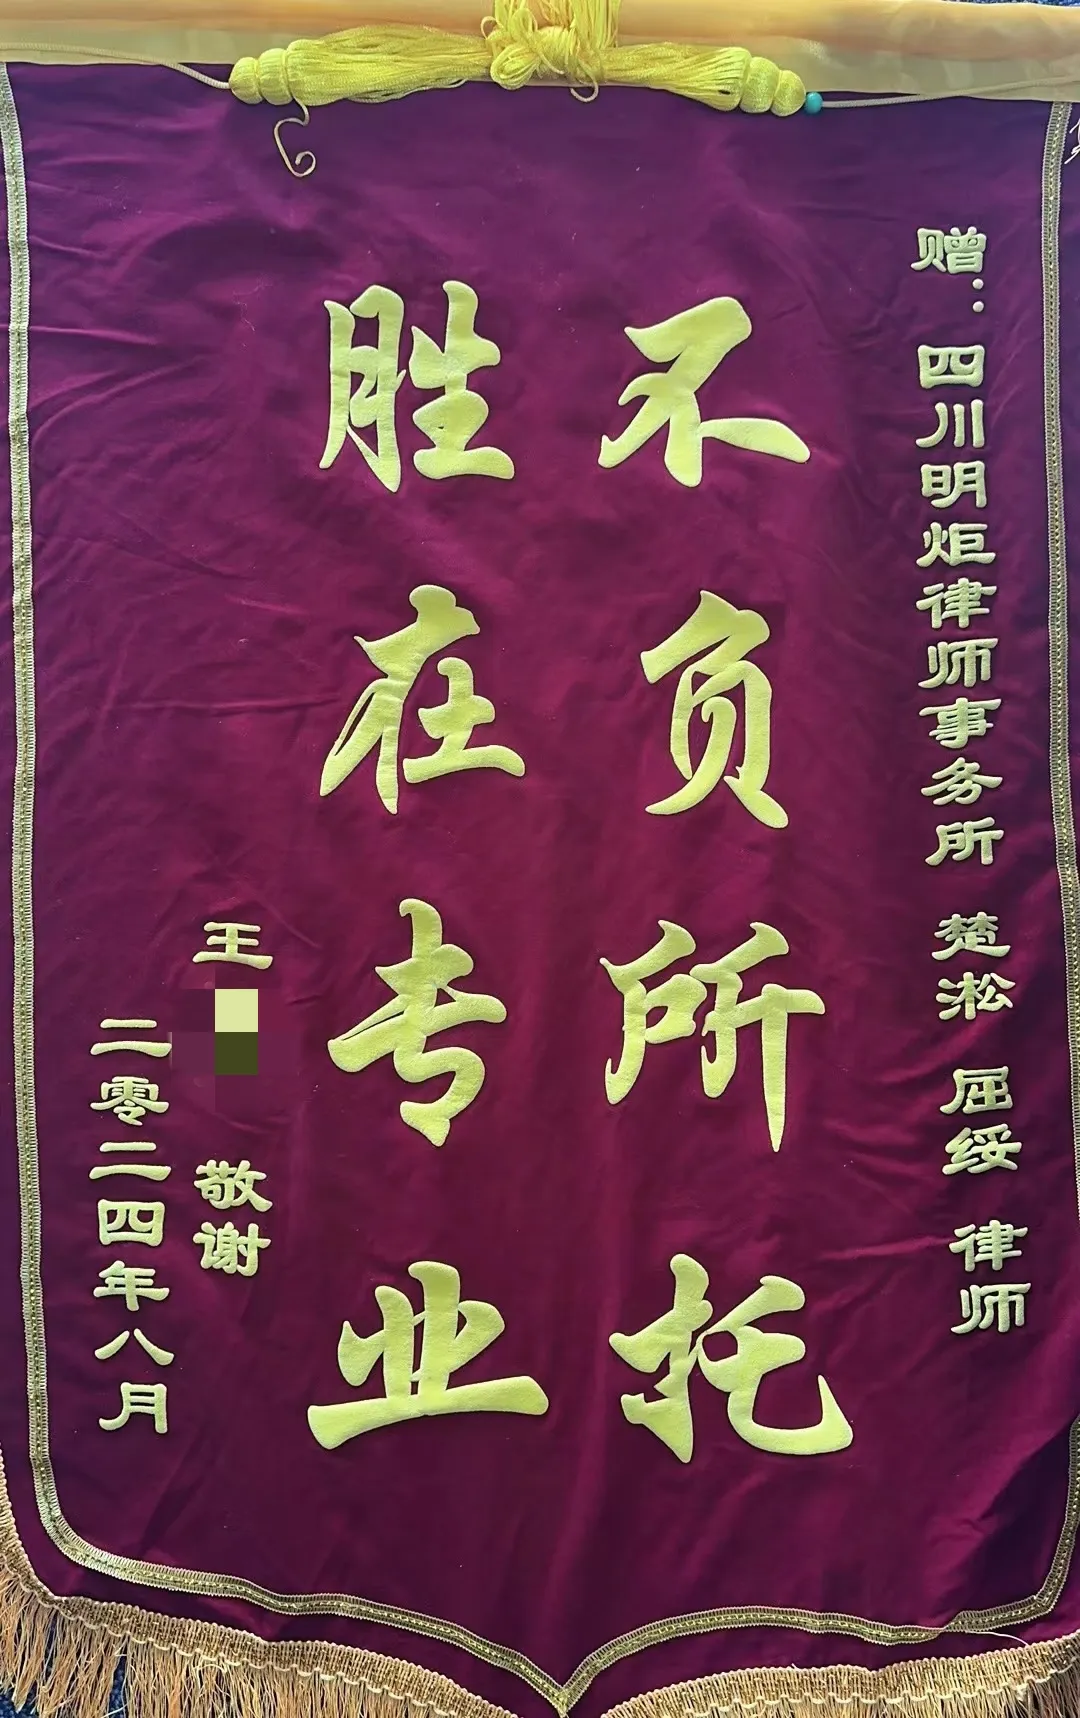 赠：四川明炬律师事务所 楚淞 屈绥 律师
不负所托
胜在专业
王 敬谢
二零二四年八月